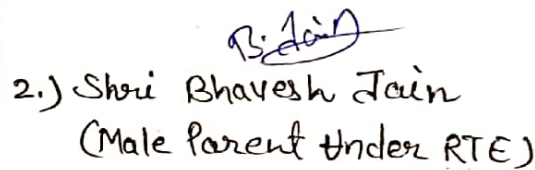 B. Jain
2.) Shri Bhavesh Jain
(Male Parent Under RTE)